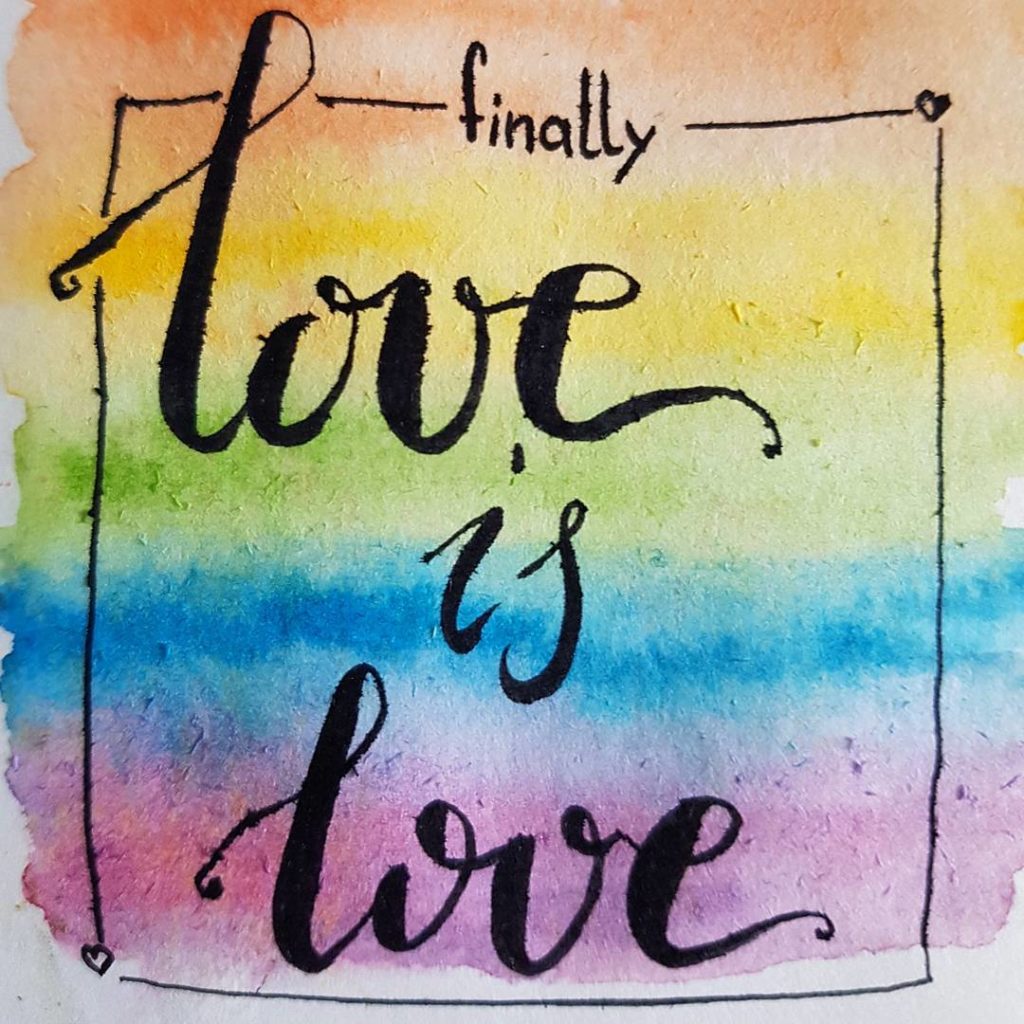 finally
love
is
love